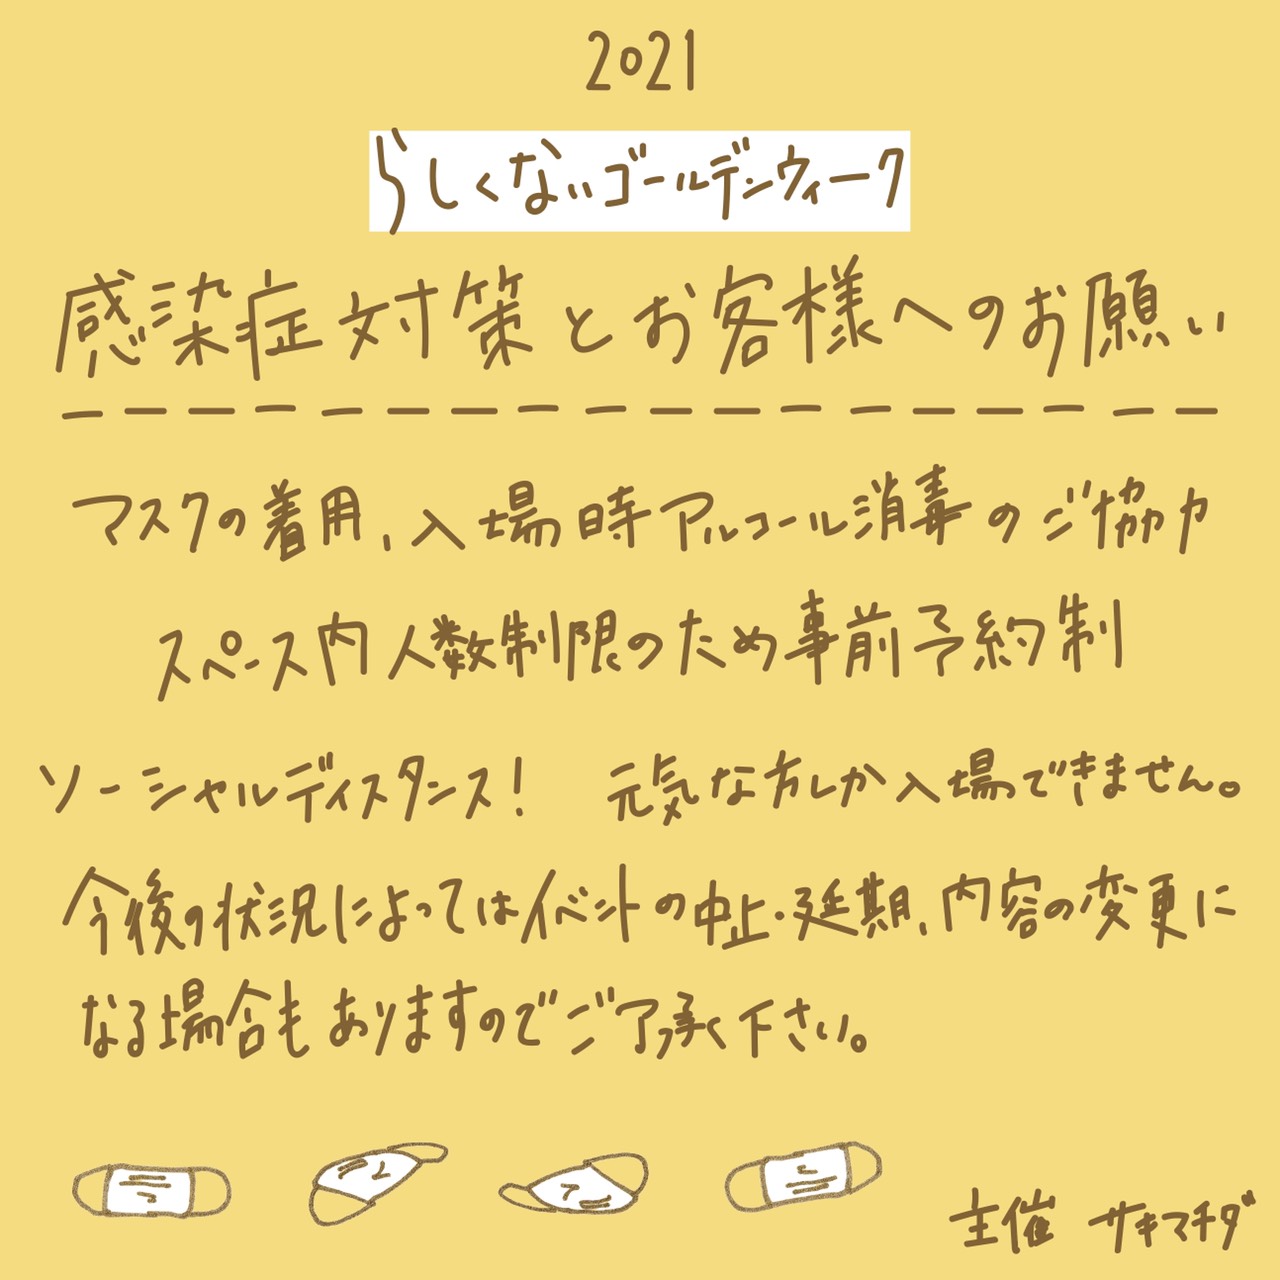 2021
らしくないゴールデンウィーク
感染症対策とお客様へのお願い
マスクの着用、入場時アルコール消毒のご協力
スペース内人数制限のため事前予約制
ソーシャルディスタンス! 元気な方しか入場できません。
今後の状況によってはイベントの中止・延期、内容の変更に
なる場合もありますのでご了承く下さい。
主催 サキマチダ